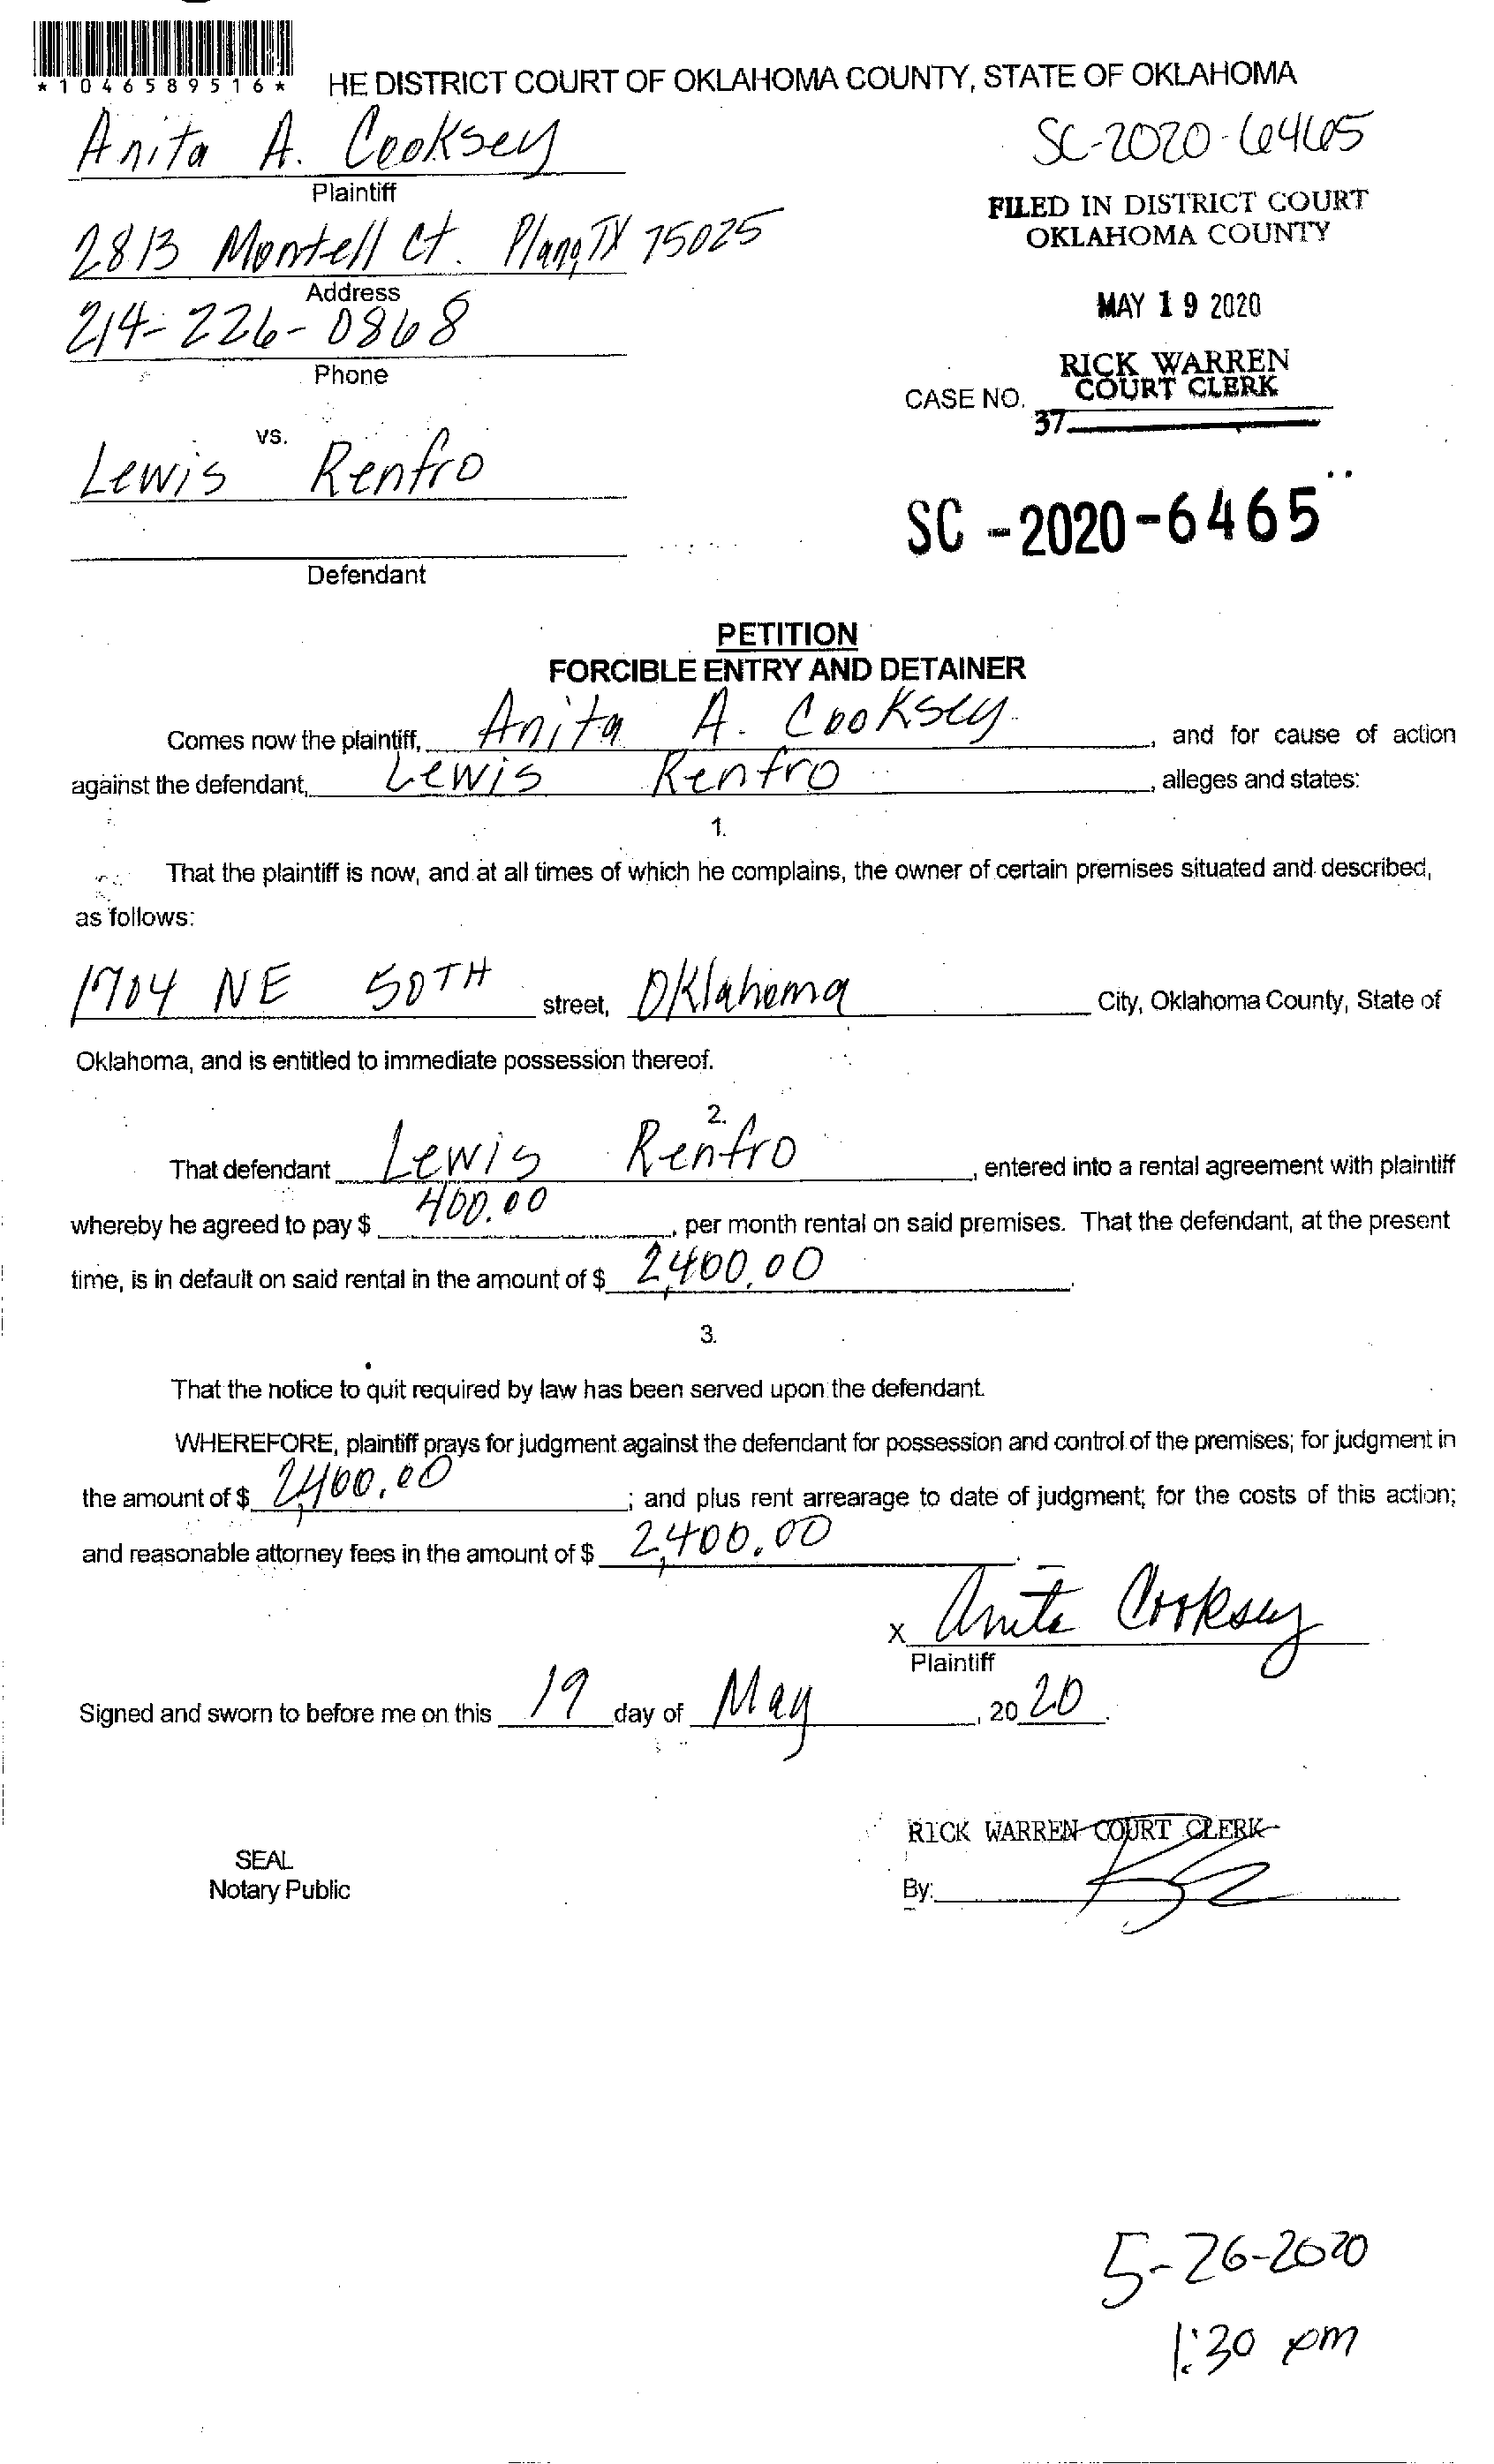 *1046589516*
HE DISTRICT COURT OF OKLAHOMA COUNTY, STATE OF OKLAHOMA
Anita A. Cooksey
SC-2020-6465
Plaintiff
FILED IN DISTRICT COURT
OKLAHOMA COUNTY
2813 Montell Ct. Plano, TX 75025
Address
MAY 19 2020
214-226-0868
Phone
RICK WARREN
COURT CLERK
CASE NO.
37
vs.
Lewis Renfro
SC-2020-6465
Defendant
PETITION
FORCIBLE ENTRY AND DETAINER
Comes now the plaintiff, Anita A. Cooksey, and for cause of action
against the defendant, Lewis Renfro, alleges and states:
1.
That the plaintiff is now, and at all times of which he complains, the owner of certain premises situated and described,
as follows:
1704 NE 50TH street, Oklahoma City, Oklahoma County, State of
Oklahoma, and is entitled to immediate possession thereof.
2.
That defendant Lewis Renfro, entered into a rental agreement with plaintiff
whereby he agreed to pay $ 400.00, per month rental on said premises. That the defendant, at the present
time, is in default on said rental in the amount of $ 2,400.00.
3.
That the notice to quit required by law has been served upon the defendant.
WHEREFORE, plaintiff prays for judgment against the defendant for possession and control of the premises; for judgment in
the amount of $ 2,400.00; and plus rent arrearage to date of judgment; for the costs of this action;
and reasonable attorney fees in the amount of $ 2,400.00.
X Anita Cooksey
Plaintiff
Signed and sworn to before me on this 19 day of May, 2020.
RICK WARREN COURT CLERK
SEAL
Notary Public
By:
5-26-2020
1:30 pm